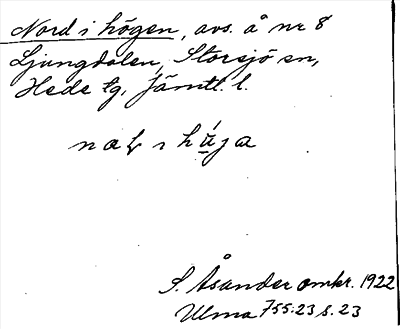 Nord i högen, avs. å nr 8
Ljungdalen, Storsjö sn,
Hede tg, Jämtl. l.
i
S. Åsander omkr. 1922
Ulma 755:23 s. 23